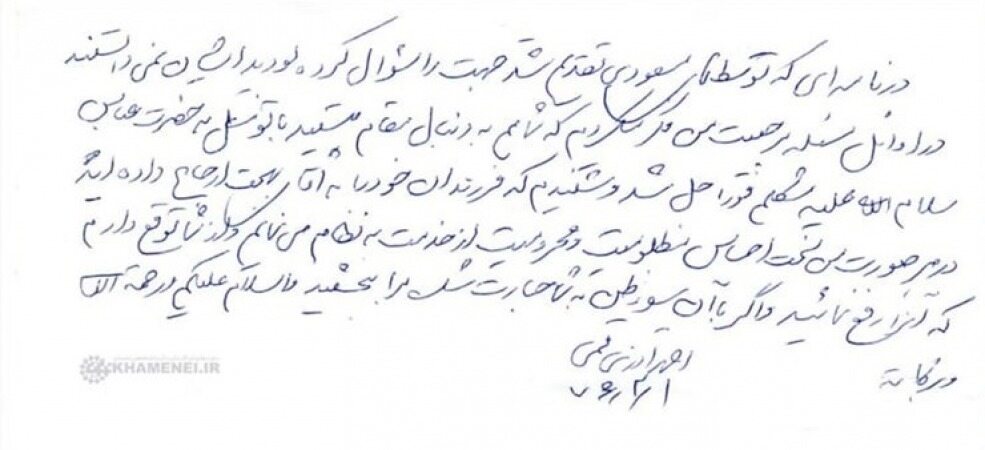 در نامه ای که توسط آقای مسعودی تقدیم شد جهت را سئوال کرده بودید ایشان نمی دانستند
در اوائل مسئله مرجعیت من فکر می کردم که شما هم به دنبال مقام هستید با توسل به حضرت عباس
سلام الله علیه مشکلم فوراً حل شد و شنیدم که فرزندان خود را به آقای بهجت ارجاع داده اید
در هر صورت من تحت احساس مظلومیت و محرومیت از خدمت به نظام می نمایم و از شما توقع دارم
که آنرا رفع نمائید و اگر با آن سوء ظن به شما جسارت شد مرا ببخشید والسلام علیکم و رحمة الله
و برکاته
احمد آذری قمی
KHAMENEI.IR